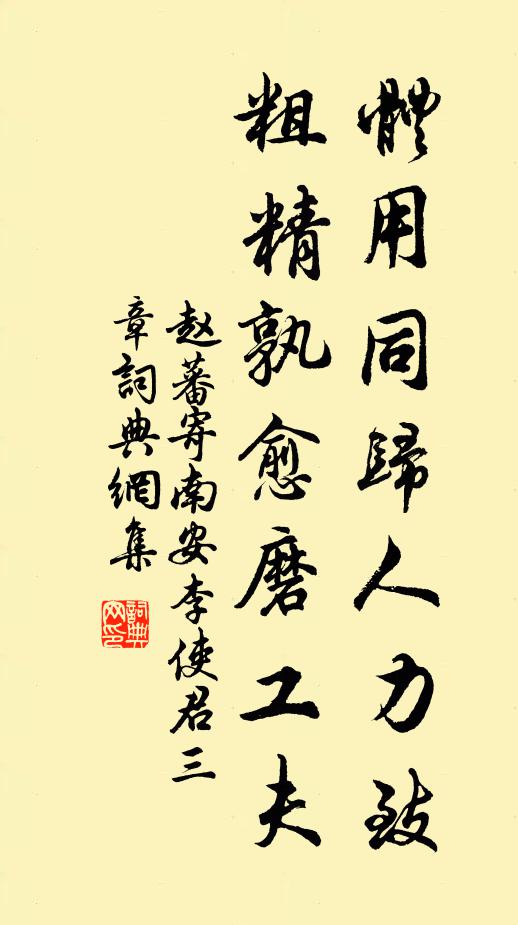 體用同歸人力致
粗精孰愈磨工夫
赵蕃寄南安李使君三
章詞典網集
詞典网印